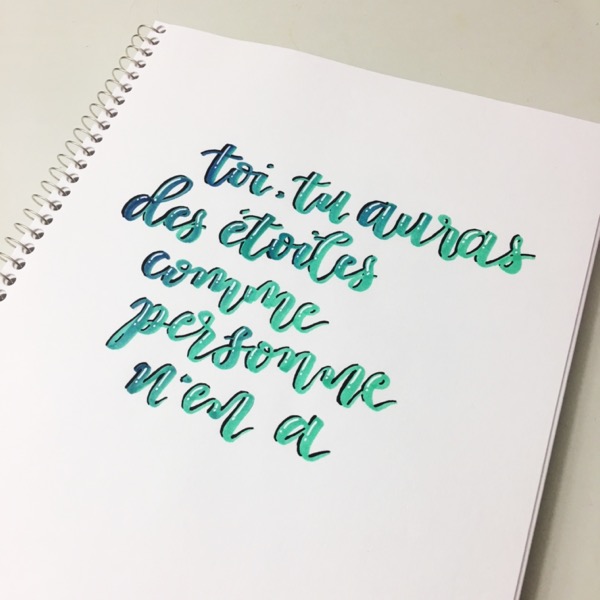 toi, tu auras
des étoiles
comme
personne
n'en a